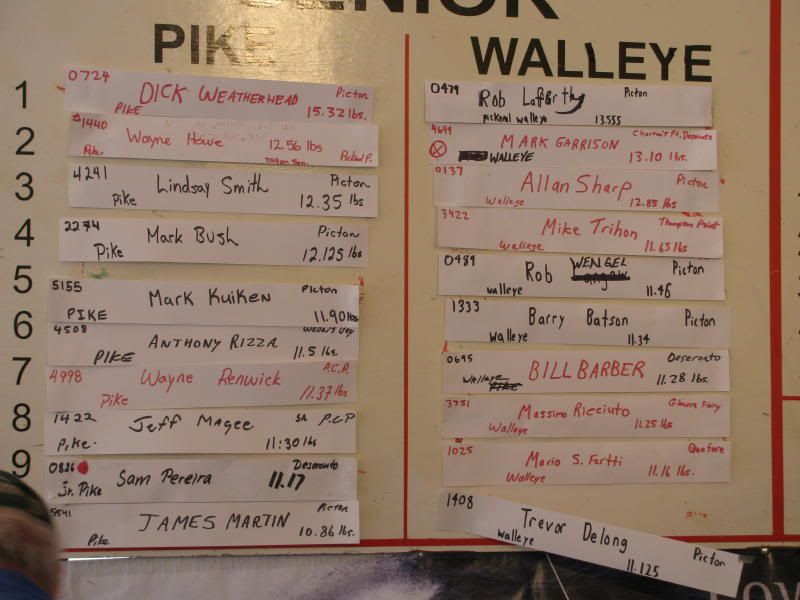 SENIOR
PIKE
1
0724 DICK WEATHERHEAD Picton
PIKE 15.32 lbs.
2
1440 Wayne House 12.56 lbs
Pike Picket P.
3
4241 Lindsay Smith Picton
Pike 12.35 lbs
4
2274 Mark Bush Picton
Pike 12.125 lbs
5
5155 Mark Kuiken Picton
PIKE 11.90 lbs
6
4508 ANTHONY RIZZA Wellers Bay
PIKE 11.5 lbs.
7
4998 Wayne Renwick P.C.P.
Pike 11.37 lbs
8
1422 Jeff Magee P.C.P
Pike. 11:30 lbs
9
0826 Sam Pereira Deseronto
Jr. Pike 11.17
5541 JAMES MARTIN Picton
Pike 10.86 lbs.
WALLEYE
0479 Rob Lafferty Picton
pickeral walleye 13.555
4649 MARK GARRISON Deseronto
WALLEYE 13.10 lbs.
0137 Allan Sharp Picton
Walleye 12.85 lbs
3422 Mike Trihon Thompson Point
Walleye 11.63 lbs
0489 Rob WENGEL Picton
walleye 11.46
1333 Barry Batson Picton
Walleye 11.34
0695 BILL BARBER Deseronto
Walleye 11.28 lbs.
3751 Massimo Ricciuto Glenora Ferry
Walleye 11.25 lbs
1025 Mario S. Fertti
Walleye 11.16 lbs.
1408 Trevor Delong Picton
walleye 11.125